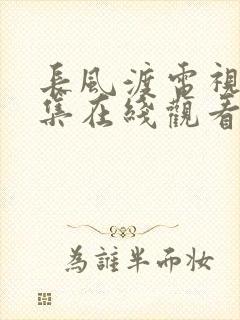 長風渡電視
集在綫觀看
為誰半而妆